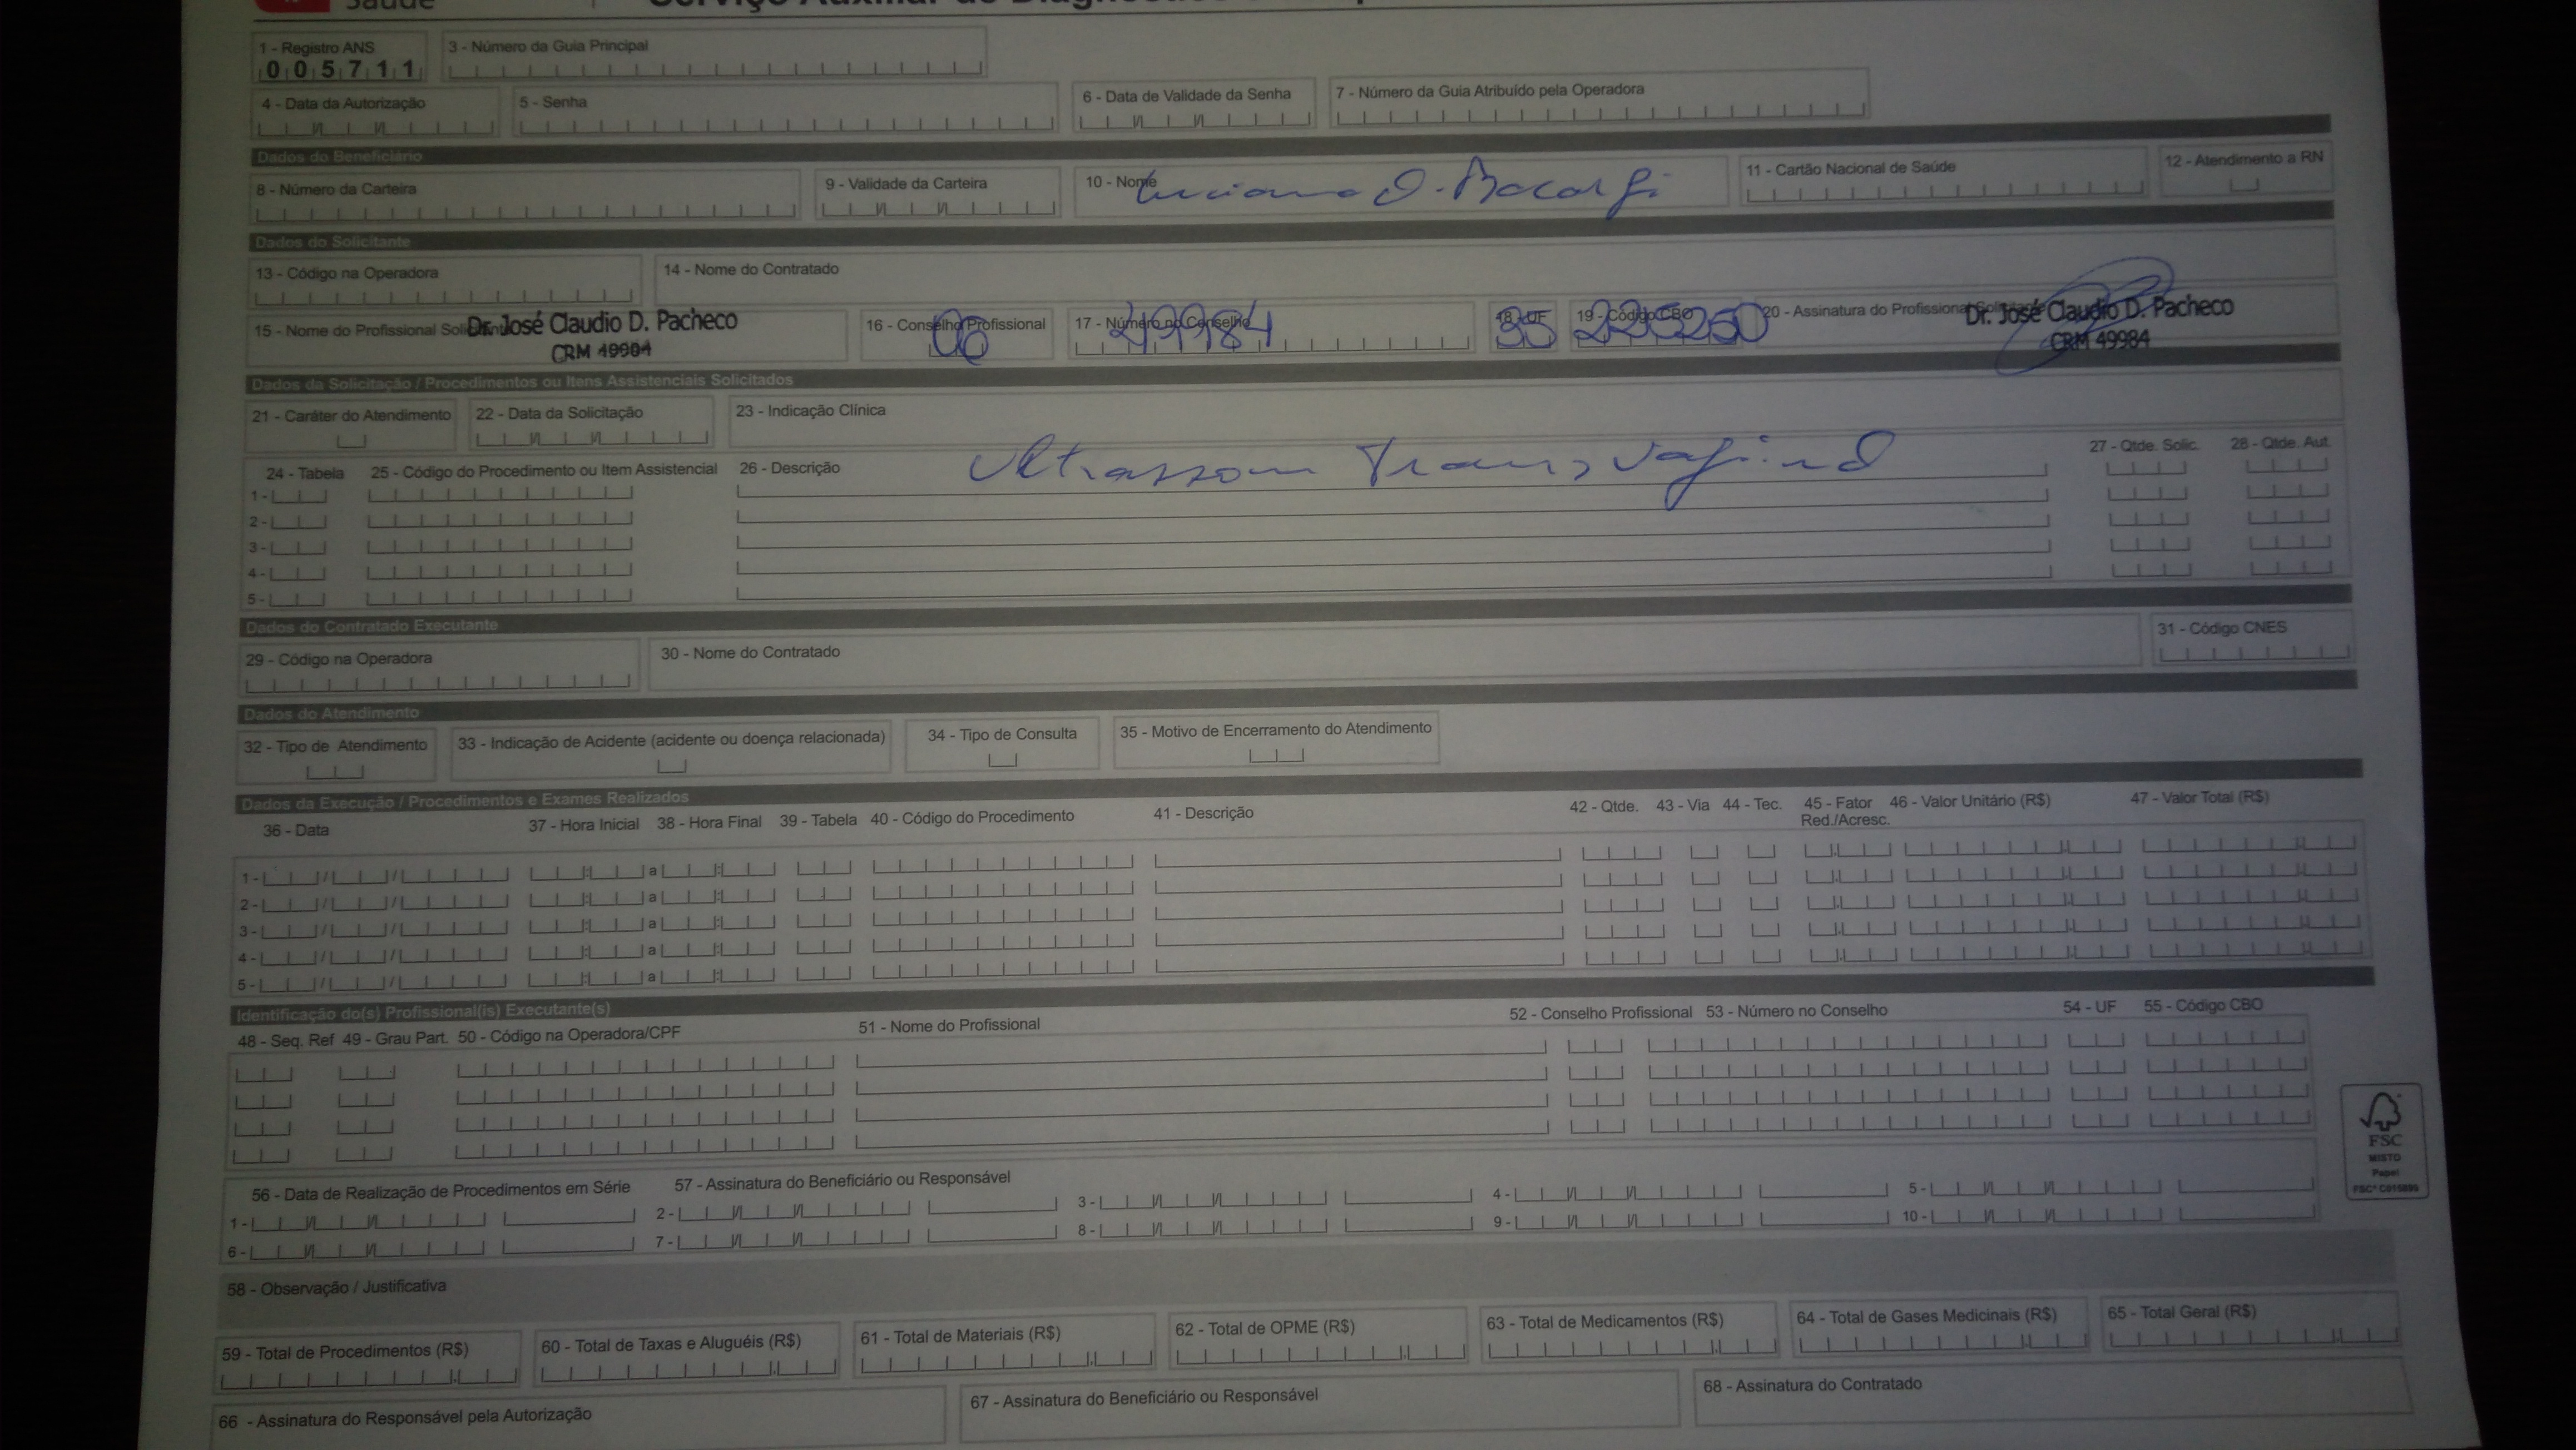 Saúde
1 - Registro ANS
005711
3 - Número da Guia Principal
4 - Data da Autorização
5 - Senha
6 - Data de Validade da Senha
7 - Número da Guia Atribuído pela Operadora
Dados do Beneficiário
8 - Número da Carteira
9 - Validade da Carteira
10 - Nome
11 - Cartão Nacional de Saúde
12 - Atendimento a RN
Dados do Solicitante
13 - Código na Operadora
14 - Nome do Contratado
15 - Nome do Profissional Solicitante
Dr. José Claudio D. Pacheco
CRM 49984
16 - Conselho Profissional
06
17 - Número no Conselho
49984
18 - UF
35
19 - Código CBO
225250
20 - Assinatura do Profissional Solicitante
Dr. José Claudio D. Pacheco
CRM 49984
Dados da Solicitação / Procedimentos ou Itens Assistenciais Solicitados
21 - Caráter do Atendimento
22 - Data da Solicitação
23 - Indicação Clínica
24 - Tabela
25 - Código do Procedimento ou Item Assistencial
26 - Descrição
Ultrassom Transvaginal
27 - Qtde. Solic.
28 - Qtde. Aut.
1 -
2 -
3 -
4 -
5 -
Dados do Contratado Executante
29 - Código na Operadora
30 - Nome do Contratado
31 - Código CNES
Dados do Atendimento
32 - Tipo de Atendimento
33 - Indicação de Acidente (acidente ou doença relacionada)
34 - Tipo de Consulta
35 - Motivo de Encerramento do Atendimento
Dados da Execução / Procedimentos e Exames Realizados
36 - Data
37 - Hora Inicial
38 - Hora Final
39 - Tabela
40 - Código do Procedimento
41 - Descrição
42 - Qtde.
43 - Via
44 - Tec.
45 - Fator Red./Acresc.
46 - Valor Unitário (R$)
47 - Valor Total (R$)
1 - / / : a :
2 - / / : a :
3 - / / : a :
4 - / / : a :
5 - / / : a :
Identificação do(s) Profissional(is) Executante(s)
48 - Seq. Ref
49 - Grau Part.
50 - Código na Operadora/CPF
51 - Nome do Profissional
52 - Conselho Profissional
53 - Número no Conselho
54 - UF
55 - Código CBO
FSC
MISTO
Papel
56 - Data de Realização de Procedimentos em Série
57 - Assinatura do Beneficiário ou Responsável
1 - 2 - 3 - 4 - 5 -
6 - 7 - 8 - 9 - 10 -
58 - Observação / Justificativa
59 - Total de Procedimentos (R$)
60 - Total de Taxas e Aluguéis (R$)
61 - Total de Materiais (R$)
62 - Total de OPME (R$)
63 - Total de Medicamentos (R$)
64 - Total de Gases Medicinais (R$)
65 - Total Geral (R$)
66 - Assinatura do Responsável pela Autorização
67 - Assinatura do Beneficiário ou Responsável
68 - Assinatura do Contratado